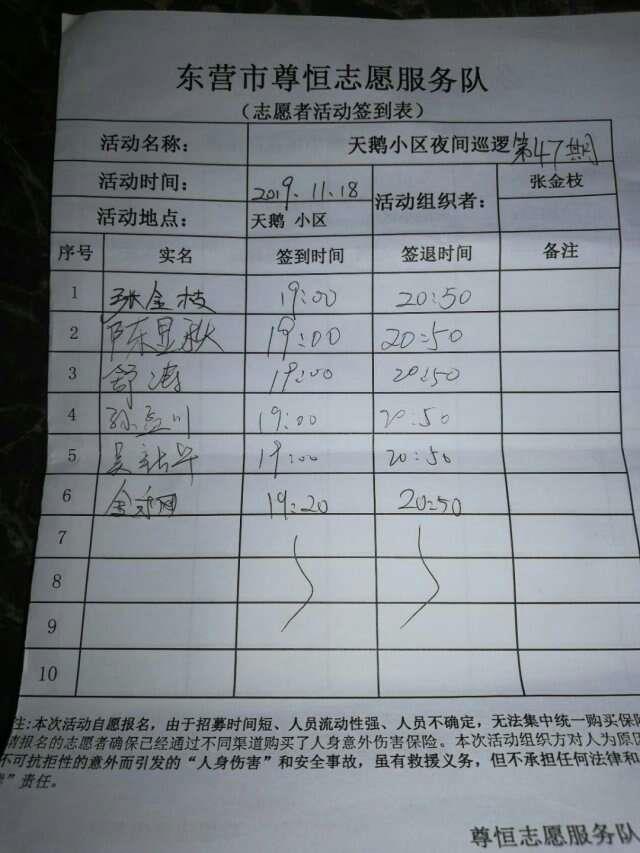 东营市尊恒志愿服务队
（志愿者活动签到表）
活动名称： 天鹅小区夜间巡逻第47期
活动时间： 2019.11.18 活动组织者： 张金枝
活动地点： 天鹅 小区
序号 实名 签到时间 签退时间 备注
1 张金枝 19:00 20:50
2 陈显秋 19:00 20:50
3 舒涛 19:00 20:50
4 孙 川 19:00 20:50
5 吴 19:00 20:50
6 19:20 20:50
7
8
9
10
注:本次活动自愿报名，由于招募时间短、人员流动性强、人员不确定，无法集中统一购买保险
请报名的志愿者确保已经通过不同渠道购买了人身意外伤害保险。本次活动组织方对人为原因
不可抗拒性的意外而引发的“人身伤害”和安全事故，虽有救援义务，但不承担任何法律和
”责任。
尊恒志愿服务队